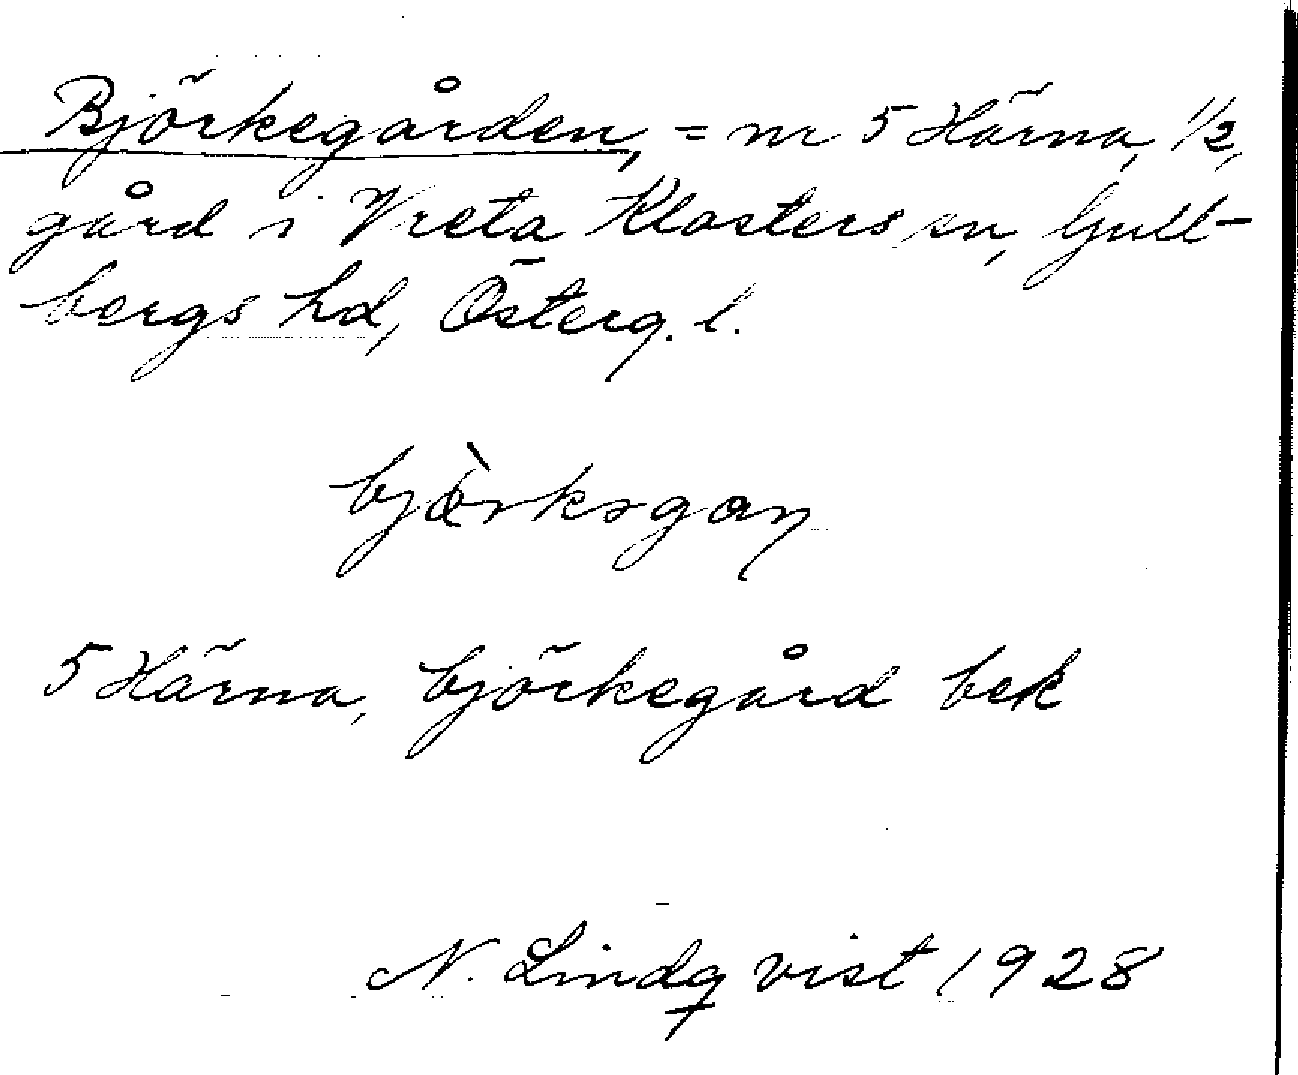 Björkegården, = nr 5 Härna, 1/2,
gård i Vreta Klosters sn, Gull-
bergs hd, Österg. l.
5 Härna, björkegård bek
N. Lindqvist 1928